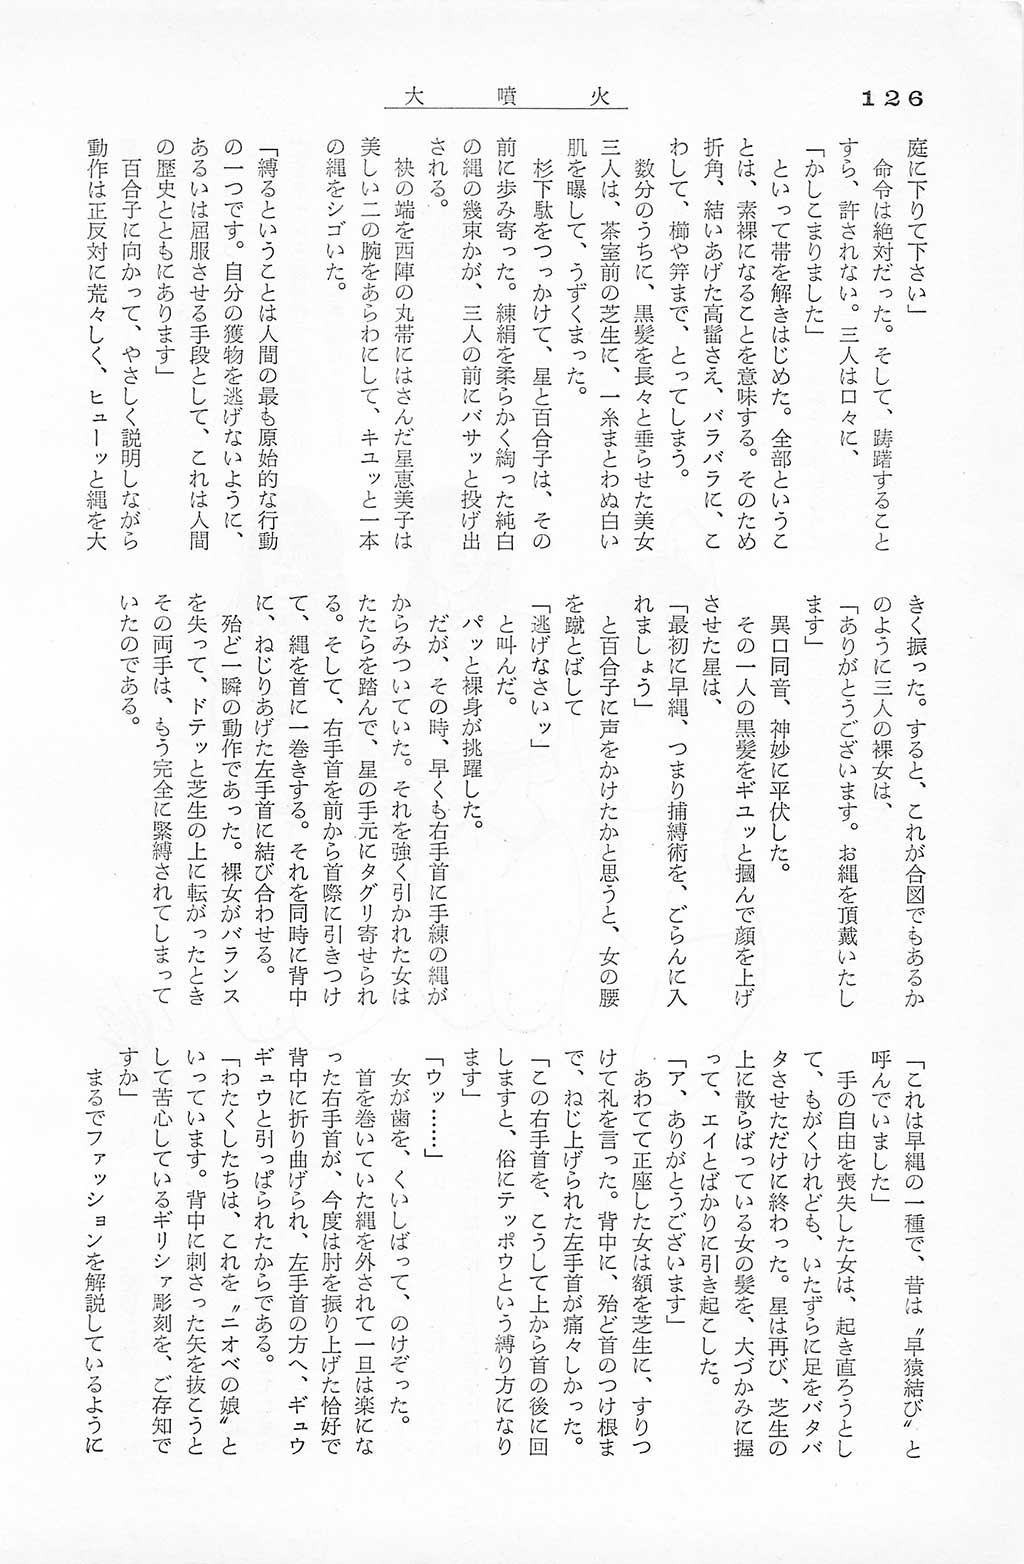 126
大噴火
庭に下りて下さい」
　命令は絶対だった。そして、躊躇すること
すら、許されない。三人は口々に、
「かしこまりました」
　といって帯を解きはじめた。全部というこ
とは、素裸になることを意味する。そのため
折角、結いあげた高髷さえ、バラバラに、こ
わして、櫛や笄まで、とってしまう。
　数分のうちに、黒髪を長々と垂らせた美女
三人は、茶室前の芝生に、一糸まとわぬ白い
肌を曝して、うずくまった。
　杉下駄をつっかけて、星と百合子は、その
前に歩み寄った。練絹を柔らかく綯った純白
の縄の幾束かが、三人の前にバサッと投げ出
される。
　袂の端を西陣の丸帯にはさんだ星恵美子は
美しい二の腕をあらわにして、キユッと一本
の縄をシゴいた。
「縛るということは人間の最も原始的な行動
の一つです。自分の獲物を逃げないように、
あるいは屈服させる手段として、これは人間
の歴史とともにあります」
　百合子に向かって、やさしく説明しながら
動作は正反対に荒々しく、ヒューーッと縄を大
きく振った。すると、これが合図でもあるか
のように三人の裸女は、
「ありがとうございます。お縄を頂戴いたし
ます」
　異口同音、神妙に平伏した。
　その一人の黒髪をギユッと摑んで顔を上げ
させた星は、
「最初に早縄、つまり捕縛術を、ごらんに入
れましょう」
　と百合子に声をかけたかと思うと、女の腰
を蹴とばして
「逃げなさいッ」
　と叫んだ。
　パッと裸身が挑躍した。
　だが、その時、早くも右手首に手練の縄が
からみついていた。それを強く引かれた女は
たたらを踏んで、星の手元にタグリ寄せられ
る。そして、右手首を前から首際に引きつけ
て、縄を首に一巻きする。それを同時に背中
に、ねじりあげた左手首に結び合わせる。
　殆ど一瞬の動作であった。裸女がバランス
を失って、ドテッと芝生の上に転がったとき
その両手は、もう完全に緊縛されてしまって
いたのである。
「これは早縄の一種で、昔は〝早猿結び〟と
呼んでいました」
　手の自由を喪失した女は、起き直ろうとし
て、もがくけれども、いたずらに足をバタバ
タさせただけに終わった。星は再び、芝生の
上に散らばっている女の髪を、大づかみに握
って、エイとばかりに引き起こした。
「ア、ありがとうございます」
　あわてて正座した女は額を芝生に、すりつ
けて礼を言った。背中に、殆ど首のつけ根ま
で、ねじ上げられた左手首が痛々しかった。
「この右手首を、こうして上から首の後に回
しますと、俗にテッポウという縛り方になり
ます」
「ウッ……」
　女が歯を、くいしばって、のけぞった。
　首を巻いていた縄を外されて一旦は楽にな
った右手首が、今度は肘を振り上げた恰好で
背中に折り曲げられ、左手首の方へ、ギュウ
ギュウと引っぱられたからである。
「わたくしたちは、これを〝ニオベの娘〟と
いっています。背中に刺さった矢を抜こうと
して苦心しているギリシァ彫刻を、ご存知で
すか」
　まるでファッションを解説しているように